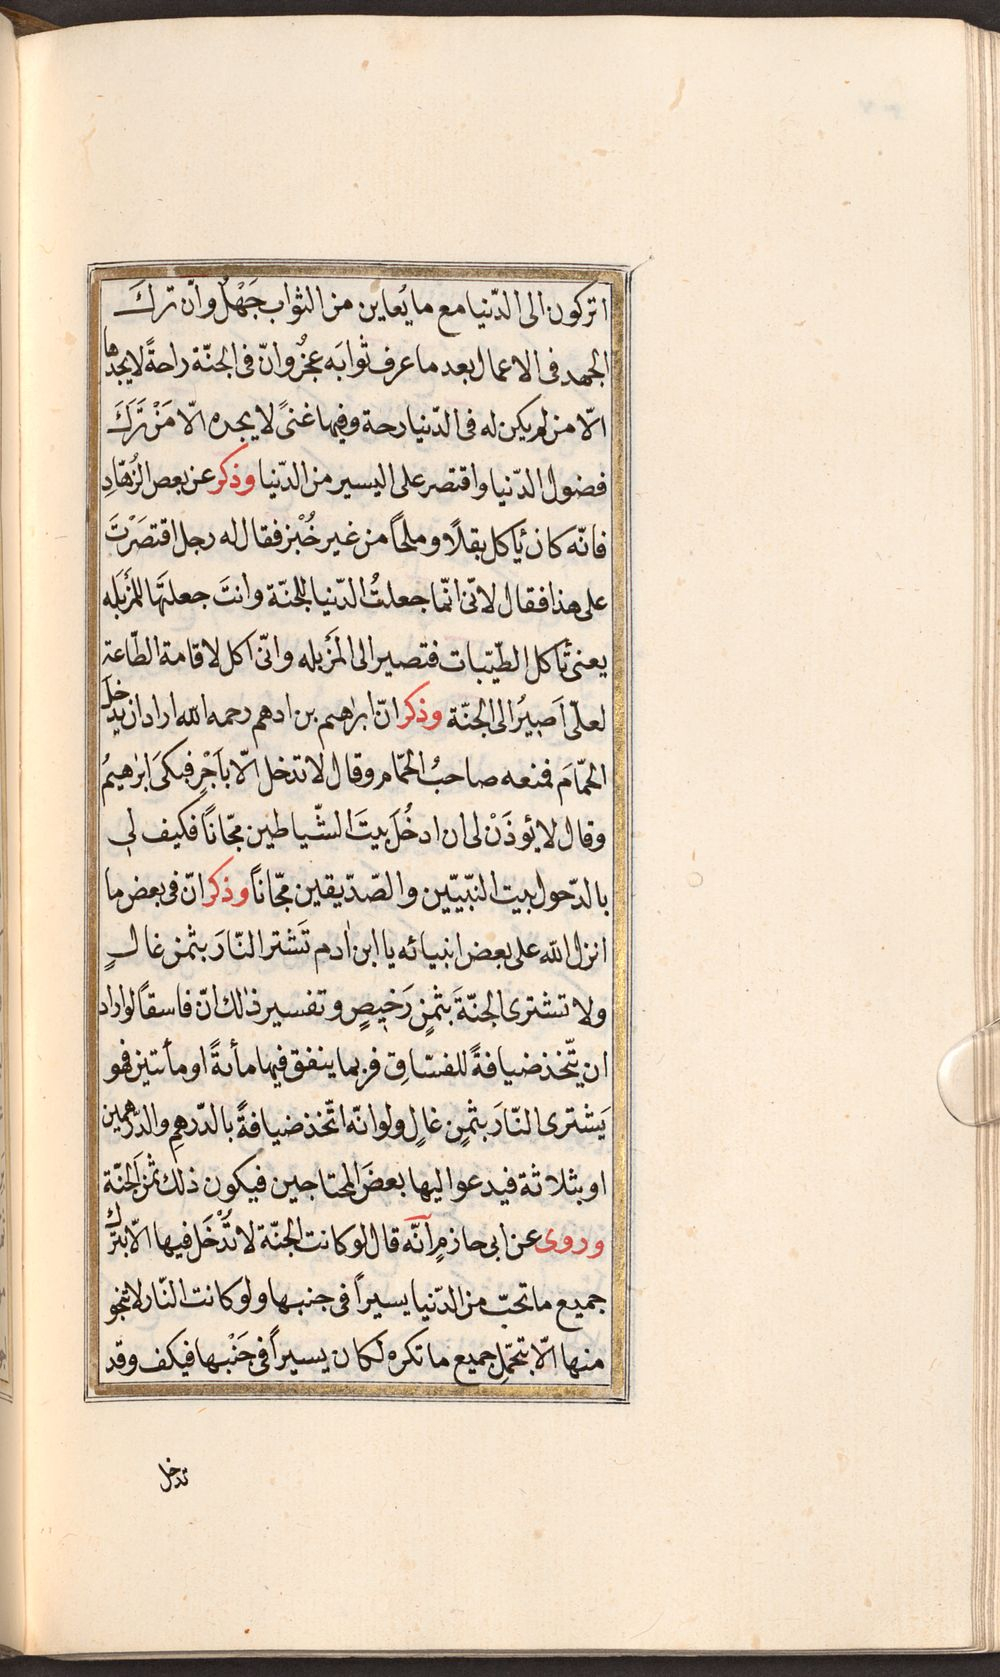 اتركون الى الدّنيا مع ما يُعاين من الثواب جَهْلٌ وانّ تركَ
الجهد فى الاعمال بعد ما عرف ثوابَه عجزٌ وانّ فى الجنّة راحةً لا يجدها
الّا من لم يكن له فى الدّنيا رحة وفيها غنىً لا يجده الّا مَنْ تَرَكَ
فضول الدّنيا واقتصر على اليسير من الدّنيا وذكر عن بعض الزُهّادِ
فانّه كان يأكل بقلًا وملحًا من غير خُبْز فقال له رجل اقتصَرْتَ
على هذا فقال لانّى انّما جعلتُ الدّنيا للجنّة وانتَ جعلتَها للمَزبَله
يعنى تأكل الطيّبات فتصير الى المَزبله وانّى اكل لاقامة الطّاعة
لعلّى اَصيرُ الى الجنّة وذكر انّ ابرهيم بن ادهم رحمه الله اراد ان يدخلَ
الحمّامَ فمنعه صاحبُ الحمّام وقال لا تدخل الّا باَجْرٍ فبكىَ ابرٰهيمُ
وقال لا يوذَنْ لى ان ادخُلَ بيتَ الشّياطين مجّانًا فكيف لى
بالدّخول بيت النّبيّين والصّدّيقين مجّانًا وذكر انّ فى بعض ما
انزل الله على بعض انبيائه يا ابن اٰدم تَشتر النّارَ بثمن غالٍ
ولا تشترى الجنّةَ بثمنٍ رَخيصٍ وتفسير ذٰلك انّ فاسقًا لو اراد
ان يتّخذ ضيافةً للفسّاقِ فربما ينفق فيها مأىةً او مأىتين فهو
يَشترى النّارَ بثمنٍ غالٍ ولو انّه اتّخذ ضيافةً بالدّرهمِ والدّرهمين
او بثلاثة فيدعو اليها بعضَ المحتاجين فيكون ذلك ثمنَ الجنّة
وروى عن ابى حازمٍ اَنّه قال لو كانت الجنّة لا تُدْخَل فيها الّا بتركِ
جميع ما تحبّ من الدّنيا يسيراً فى جنبها ولو كانت النّار لا تنجو
منها الّا بتحمّلِ جميع ما تكره لكان يسيراً فى جَنْبها فيكف وقد
تدخل